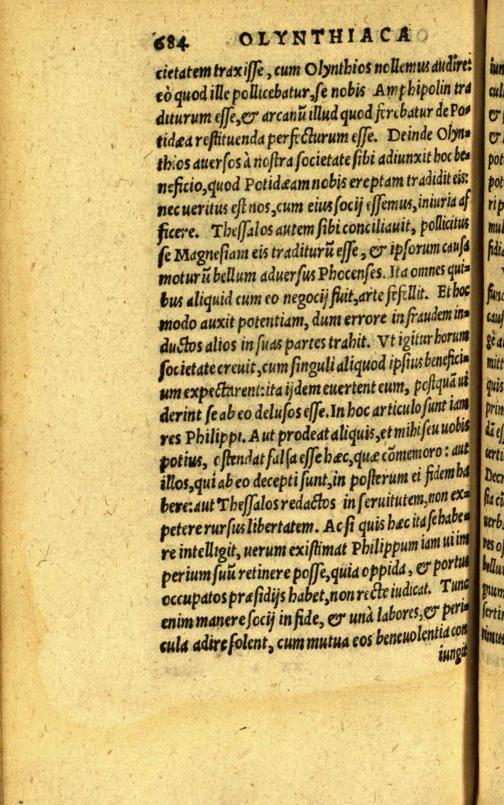 684 OLYNTHIACA
cietatem traxisse, cum Olynthios nollemus audire:
eò quod ille pollicebatur, se nobis Amphipolin tra
diturum esse, & arcanũ illud quod ferebatur de Po-
tidæa restituenda perfecturum esse. Deinde Olyn-
thios auersos à nostra societate sibi adiunxit hoc be-
neficio, quod Potidæam nobis ereptam tradidit eis:
nec ueritus est nos, cum eius socij essemus, iniuria af
ficere. Thessalos autem sibi conciliauit, pollicitus
se Magnesiam eis traditurũ esse, & ipsorum causa
moturũ bellum aduersus Phocenses. Ita omnes qui-
bus aliquid cum eo negocij fuit, arte fefellit. Et hoc
modo auxit potentiam, dum errore in fraudem in-
ductos alios in suas partes trahit. Vt igitur horum
societate creuit, cum singuli aliquod ipsius benefici-
um expectarent: ita ijdem euertent eum, postquã ui
derint se ab eo delusos esse. In hoc articulo sunt iam
res Philippi. Aut prodeat aliquis, et mihi seu uobis
potius, ostendat falsa esse hæc, quæ cõmemoro: aut
illos, qui ab eo decepti sunt, in posterum ei fidem ha
bere: aut Thessalos redactos in seruitutem, non ex-
petere rursus libertatem. Ac si quis hæc ita se habe-
re intelligit, uerum existimat Philippum iam ui im
perium suũ retinere posse, quia oppida, & portus
occupatos præsidijs habet, non recte iudicat. Tunc
enim manere socij in fide, & unà labores, & peri-
cula adire solent, cum mutua eos beneuolentia con
iungit